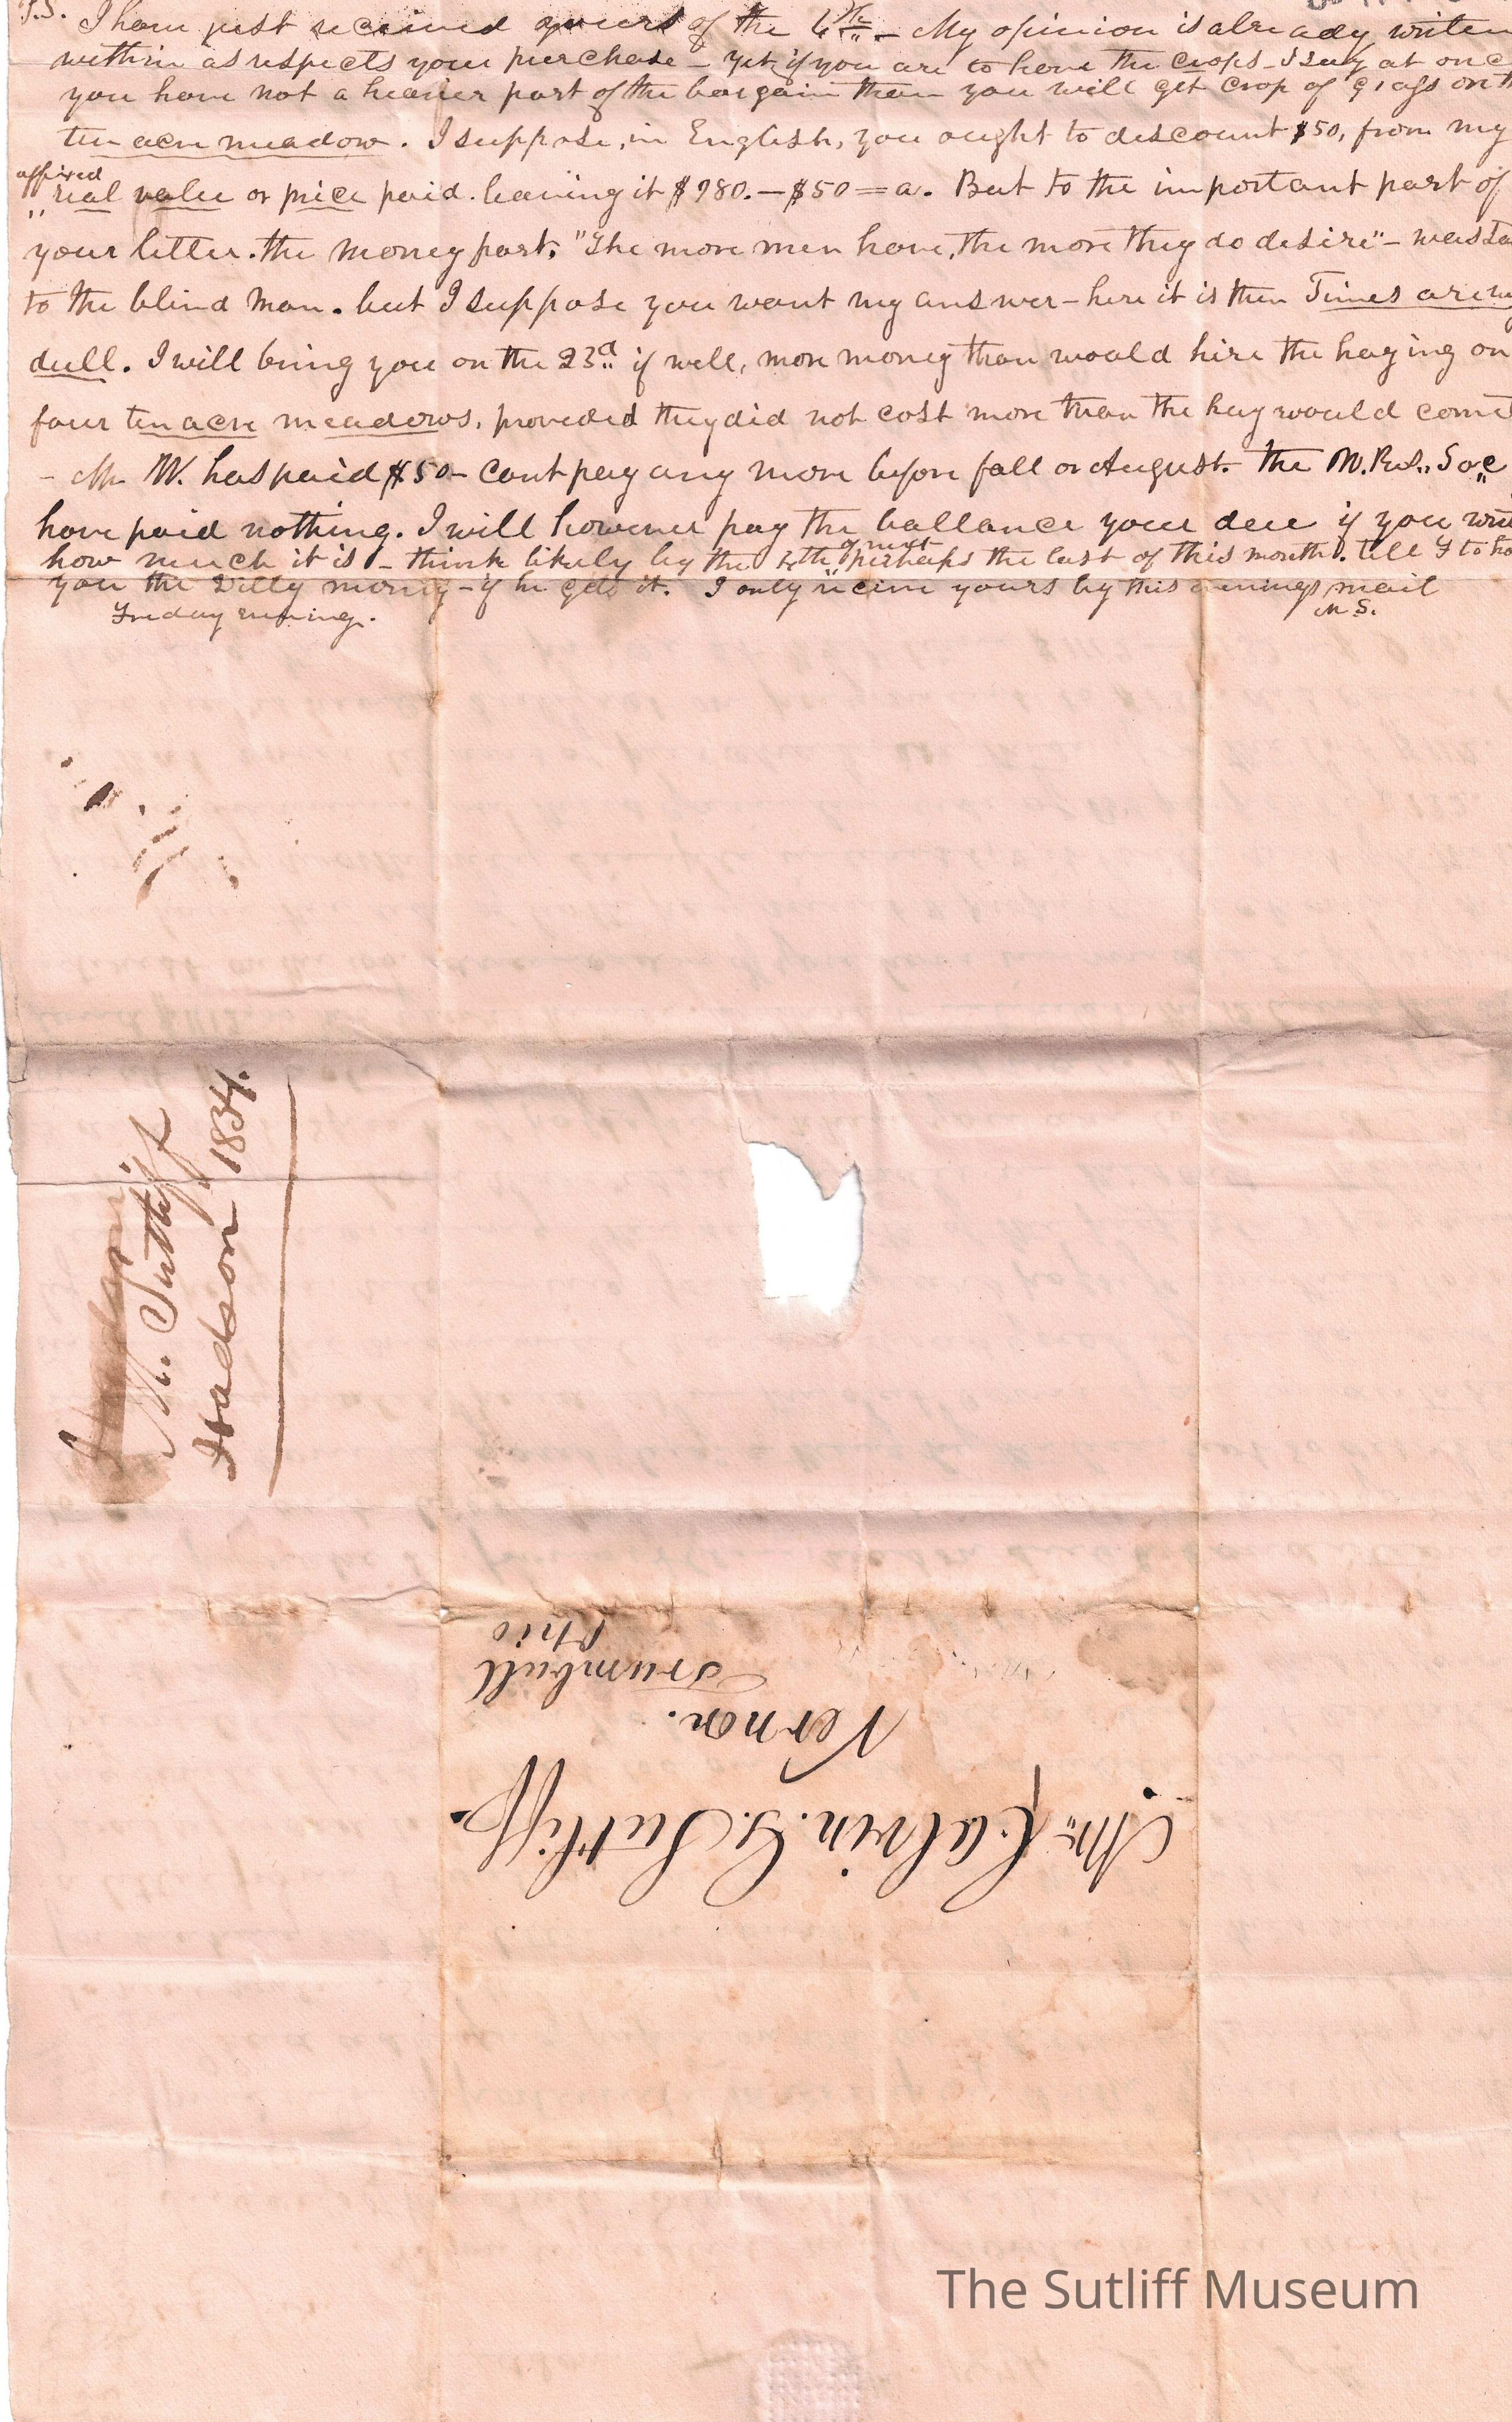 P.S. I have just received yours of the 6th - My opinion is already writen
within as respects your purchase - yet if you are to have the crops - I say at once
you have not a heavier part of the bargain than you will get crop of grass on
ten acre meadow. I suppose, in English, you ought to discount $50, from my
affixed
"real value or price paid. leaving it $980. - $50 = a. But to the important part of
your letter. the money part. "The more men have, the more they do desire" - was
to the blind man. but I suppose you want my answer - here it is then Times are
dull. I will bring you on the 23d if well, more money than would hire the haying on
four ten acre meadows, proveded they did not cost more than the hay would come
- Mr W. has paid $50 - cant pay any more before fall or August. The Soc
have paid nothing. I will however pay the ballance your due if you
of next
how much it is - think likely by the perhaps the last of this month. tell to
you the Dilly money - if he gets it. I only receive yours by this evenings mail
Friday evening.
M S.
M. Sutliff
Hudson 1834.
Mr Calvin. G. Sutliff.
Vernon.
Trumbull
Ohio
The Sutliff Museum